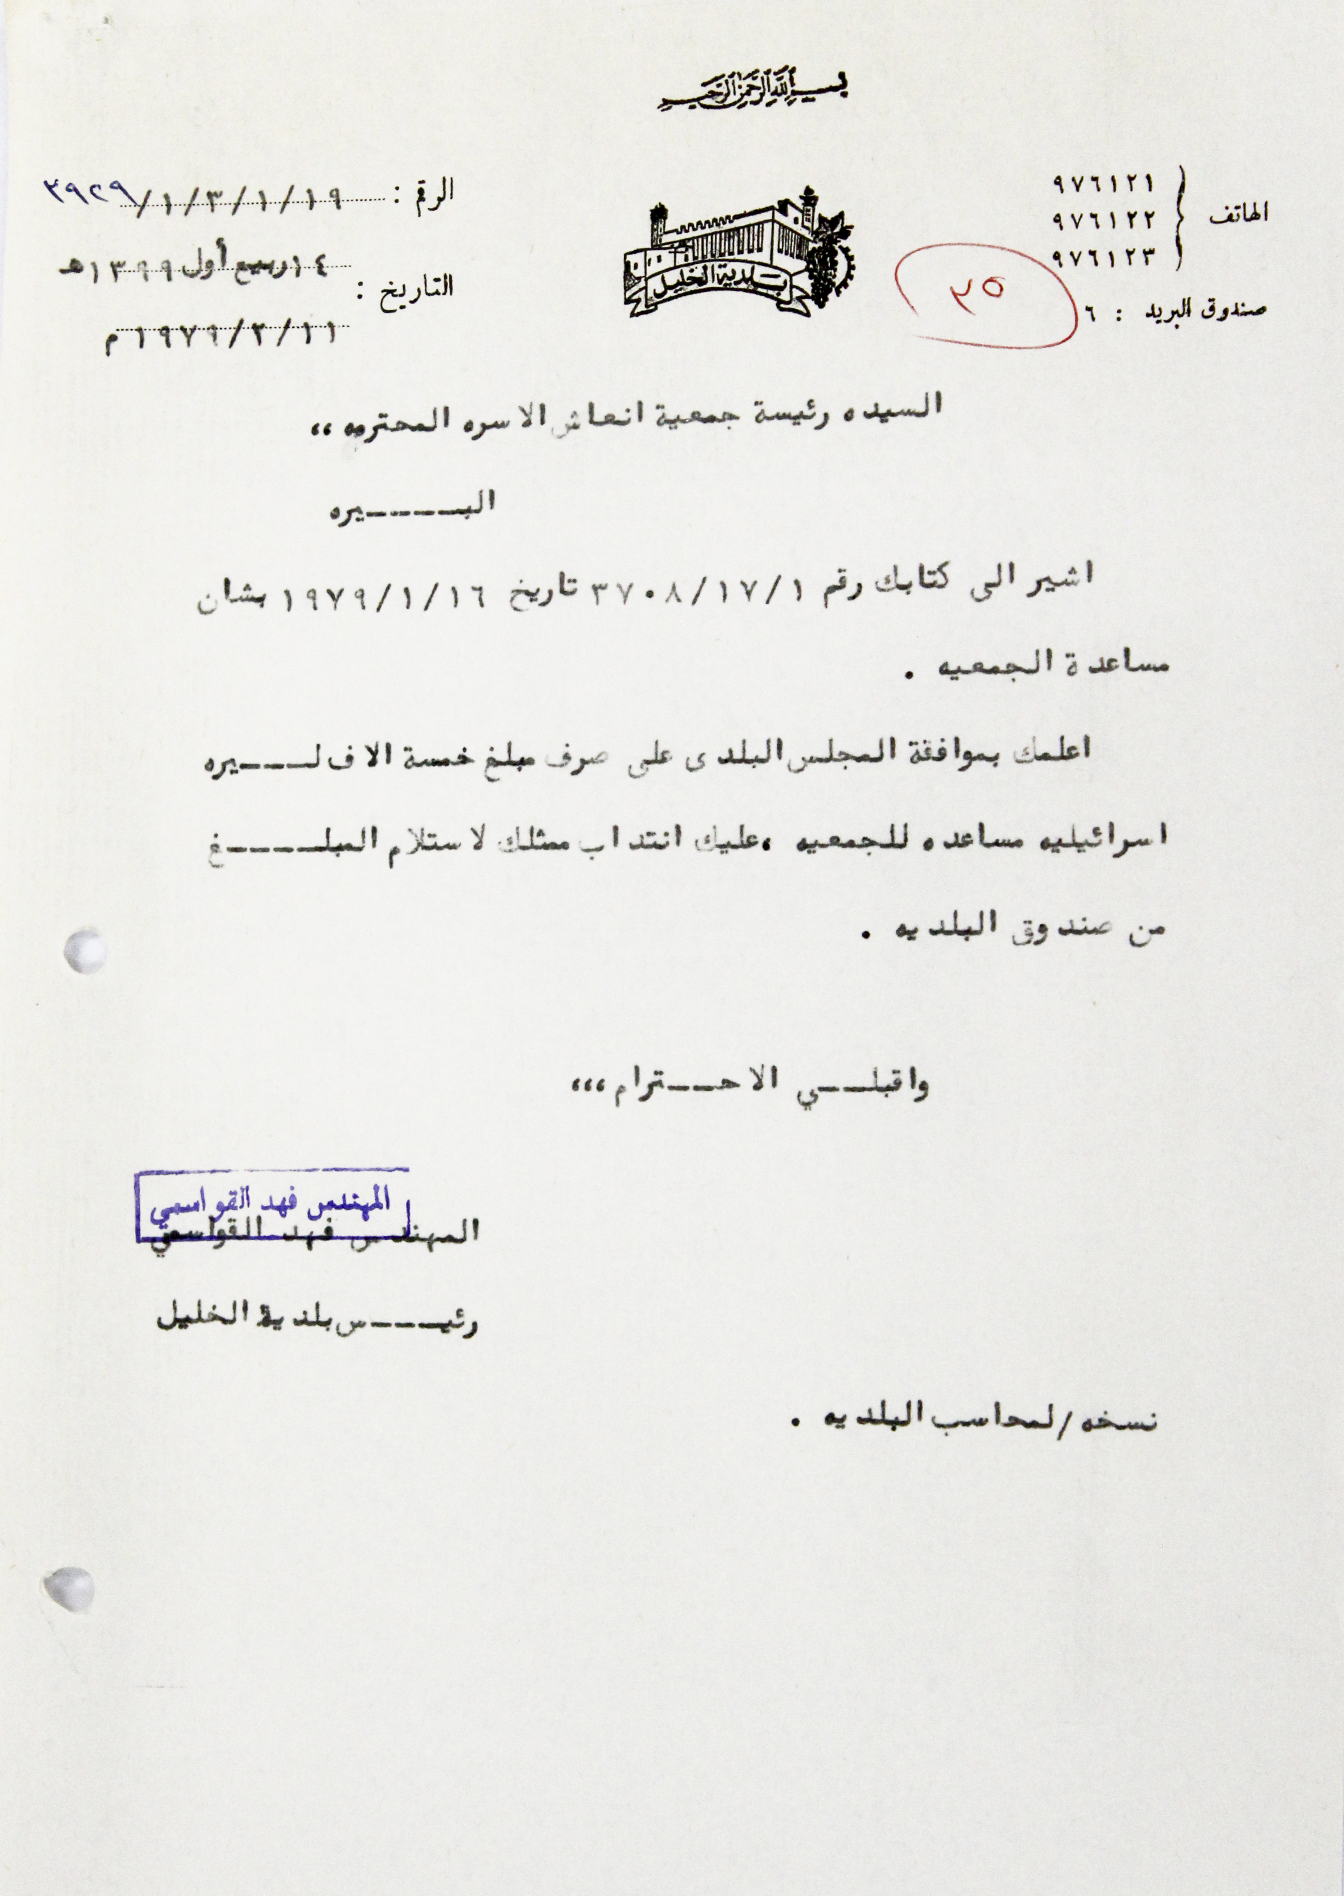 بسم الله الرحمن الرحيم
الهاتف
٩٧٦١٢١
٩٧٦١٢٢
٩٧٦١٢٣
صندوق البريد : ٦
٣٥
بلدية الخليل
الرقم : ١٩/١/٣/١/٣٩٢٩
التاريخ : ١٤ ربيع أول ١٣٩٩هـ
١١/٢/١٩٧٩م
السيده رئيسة جمعية انعاش الاسره المحترمه ،،
البـــــيره
اشير الى كتابك رقم ٣٧٠٨/١٧/١ تاريخ ١٩٧٩/١/١٦ بشان
مساعدة الجمعيه .
اعلمك بموافقة المجلس البلدى على صرف مبلغ خمسة الاف لــــيره
اسرائيليه مساعده للجمعيه ،عليك انتداب ممثلك لاستلام المبلـــــغ
من صندوق البلديه .
واقبلــــي الاحــــترام ،،،
المهندس فهد القواسمي
المهندس فهد القواسمي
رئيـــــس بلدية الخليل
نسخه /لمحاسب البلديه .